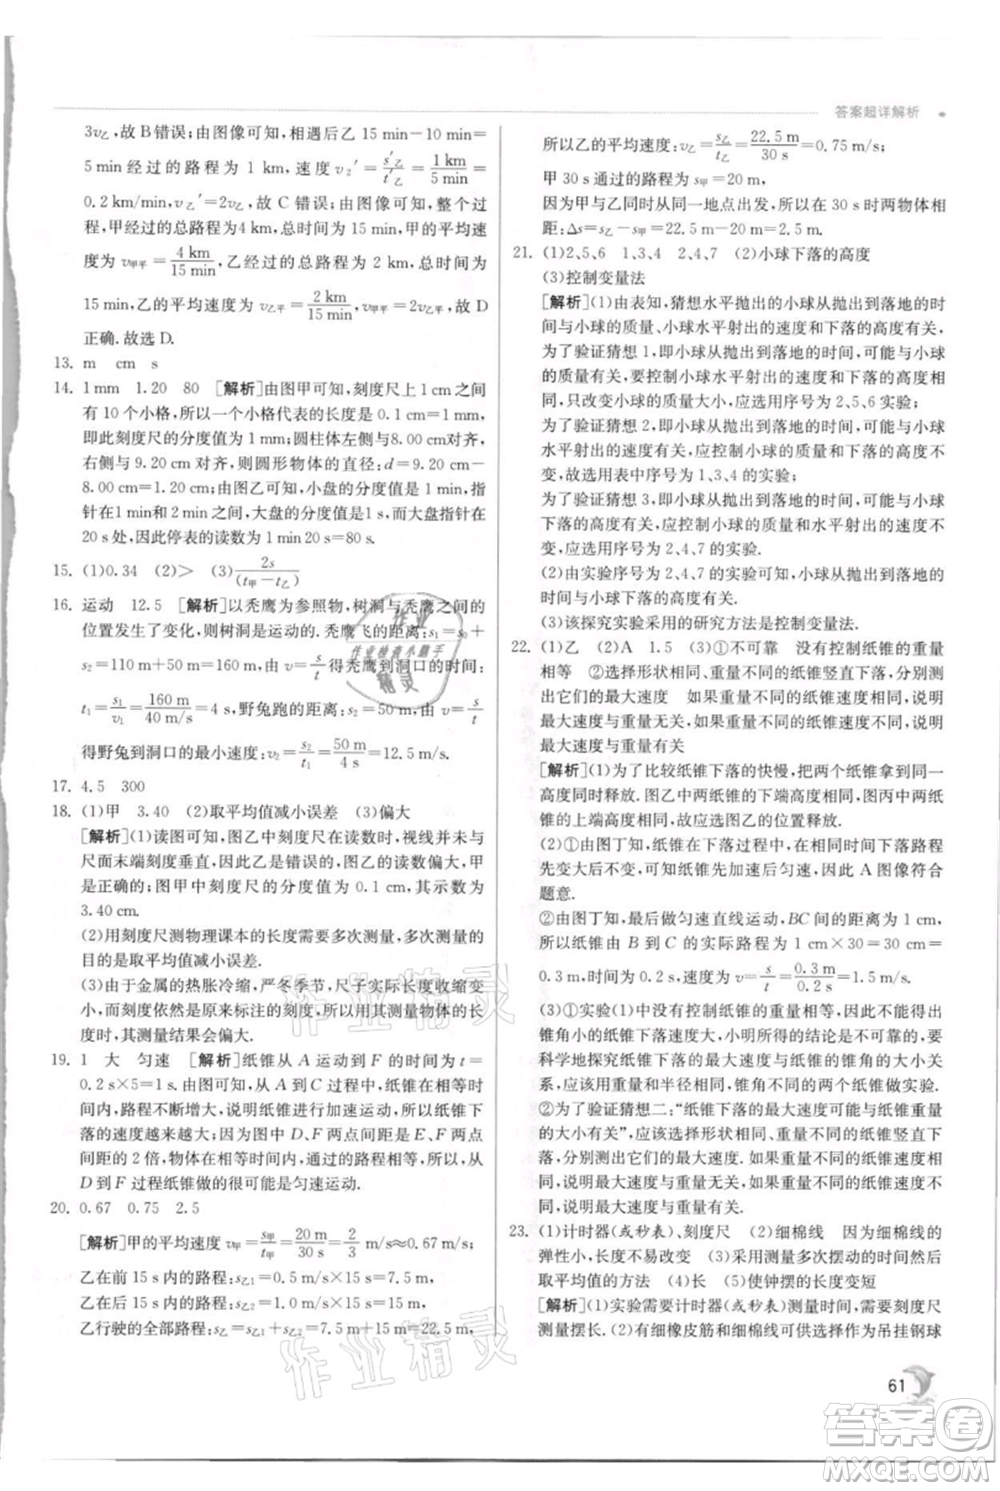 答案超详解析
3v乙,故 B 错误;由图像可知,相遇后乙 15 min−10 min=
5 min 经过的路程为 1 km,速度 v₂′=s′乙/t′乙=1 km/5 min=
0.2 km/min,v乙′=2v乙,故 C 错误;由图像可知,全过程
中,甲经过的总路程为4 km,总时间为 15 min,甲的平均速
度为 v甲平=4 km/15 min,乙经过的总路程为 2 km,总时间为
15 min,乙的平均速度为 v乙平=2 km/15 min,v甲平=2v乙平,故 D
正确.故选 D.
13. m cm s
14. 1 mm 1.20 80 [解析]由图甲可知,刻度尺上 1 cm 之间
有 10 个小格,所以一个小格代表的长度是 0.1 cm=1 mm,
即此刻度尺的分度值为 1 mm;圆柱体左侧与8.00 cm对齐,
右侧与 9.20 cm 对齐,则圆形物体的直径:d=9.20 cm−
8.00 cm=1.20 cm;由图乙可知,小盘的分度值是 1 min,指
针在1 min和2 min 之间,大盘的分度值为1 s,而大盘指针在
20 s 处,因此停表的读数为 1 min 20 s=80 s.
15. (1)0.34 (2)> (3)2s/(t甲−t乙)
16. 运动 12.5 [解析]以秃鹰为参照物,树洞与秃鹰之间的
位置发生了变化,则树洞是运动的.秃鹰飞的距离:s₁=s₀+
s₂=110 m+50 m=160 m,由 v=s/t 得秃鹰到洞口的时间:
t₁=s₁/v₁=160 m/40 m/s=4 s,野兔跑的距离:s₂=50 m,由 v=s/t
得野兔到洞口的最小速度:v₂=s₂/t₁=50 m/4 s=12.5 m/s.
17. 4.5 300
18. (1)甲 3.40 (2)取平均值减小误差 (3)偏大
[解析](1)读图可知,图乙中刻度尺在读数时,视线并未与
尺面末端刻度垂直,因此乙是错误的.图乙的读数偏大,甲
是正确的;图甲中刻度尺的分度值为 0.1 cm,其示数为
3.40 cm.
(2)用刻度尺测物理课本的长度需要多次测量,多次测量的
目的是取平均值减小误差.
(3)由于金属的热胀冷缩,严冬季节,尺子实际长度收缩变
小,而刻度依然是原来标注的刻度值,所以测量同一长度
时,其测量结果会偏大.
19. 1 大 匀速 [解析]纸锥从 A 运动到 F 的时间为 t=
0.2 s×5=1 s.由图可知,从 A 到 C 过程中,纸锥在相等时间
内,路程不断增大,说明纸锥进行加速运动,所以纸锥下
落的速度越来越大;由图中 D、F 两点间距约为 E、F 两点
间距的 2 倍,物体在相等时间内,通过的路程相等,所以从
D 到 F 过程纸锥做的很可能是匀速运动.
20. 0.67 0.75 2.5
[解析]甲的平均速度:v甲=s甲/t甲=20 m/30 s=2/3 m/s≈0.67 m/s;
乙在前 15 s 内的路程:s乙1=0.5 m/s×15 s=7.5 m;
乙在后 15 s 内的路程:s乙2=1.0 m/s×15 s=15 m;
乙行驶的全部路程:s乙=s乙1+s乙2=7.5 m+15 m=22.5 m,
所以乙的平均速度:v乙=s乙/t乙=22.5 m/30 s=0.75 m/s;
甲 30 s 通过的路程为 s甲=20 m,
因为甲与乙同时从同一地点出发,所以在 30 s 时两物体相
距:Δs=s乙−s甲=22.5 m−20 m=2.5 m.
21. (1)2、5、6 1、3、4 2、4、7 (2)小球下落的高度
(3)控制变量法
[解析](1)由表知,猜想水平抛出的小球从抛出到落地的时
间与小球的质量、小球水平射出的速度和下落的高度有关,
为了验证猜想 1,即小球从抛出到落地的时间,可能与小球
的质量有关,要控制小球水平射出的速度和下落的高度相
同,只改变小球的质量大小,故选用序号为 2、5、6 实验;
为了验证猜想 2,小球从抛出到落地的时间,可能与小球的
水平射出的速度有关,应控制小球的质量和下落的高度不
变,所以应选用表中序号为 1、3、4 的实验;
为了验证猜想 3,即小球从抛出到落地的时间,可能与小球
下落的高度有关,应控制小球的质量和水平射出的速度不
变,应选用序号为 2、4、7 的实验.
(2)由实验可知,影响小球从抛出到落地的时间的因素是小
球下落的高度.
(3)该探究实验采用的研究方法是控制变量法.
22. (1)乙 (2)A 1.5 (3)①不可靠 没有控制纸锥的重量
相等 ②选择形状相同、重量不同的纸锥竖直下落,分别测
出它们的最大速度 如果重量不同的纸锥最大速度相同,说明
最大速度与重量无关,如果最大速度不同,说明
最大速度与重量有关
[解析](1)因为了比较纸锥下落的快慢,把两个纸锥从同一
高度同时释放,图乙中两个纸锥的下端高度相同,图丙中两个纸
锥的上端高度相同,故选用图乙的位置释放.
(2)①由图丁知,纸锥在下落过程中,相同时间内下落路程
先变大后不变,故速度先加速后匀速,因此 A 图像符合
题意.
②由图丁知,最后做匀速直线运动,BC 间的距离为 1 cm,
所以纸锥由 B 到 C 的实际路程为 1 cm×30=30 cm=
0.3 m,时间为 0.2 s,速度为 v=s/t=0.3 m/0.2 s=1.5 m/s.
(3)①实验(1)中,没有控制纸锥的重量相等,所以得出的纸
锥角小的纸锥下落较快,小明得出的结论是不可靠的;要
科学地探究纸锥下落的最大速度与纸锥的锥角的大小关
系,应该选择重量和半径相同、锥角不同的纸锥做实验.
②为了验证猜想二:“纸锥下落的最大速度可能与纸锥重量
的大小有关”,应该选择形状相同、重量不同的纸锥竖直下
落,分别测出它们的最大速度;如果重量不同的纸锥最大速
度相同,说明最大速度与重量无关,如果最大速度不同,说明
最大速度与重量有关.
23. (1)计时器(或秒表)、刻度尺 (2)细棉线 因为细棉线的
弹性小,长度不易改变 (3)测量多次摆动的时间然后
取平均值的方法 (4)长 (5)使钟摆的长度变短
[解析](1)实验需要计时器(或秒表)测量时间,需要刻度尺
测量摆长.(2)有细橡皮筋和细棉线可供选择作为吊挂钢球
61
作业
作业检查小助手
精灵
作业精灵
作业精灵
答案圈
MXQE.COM